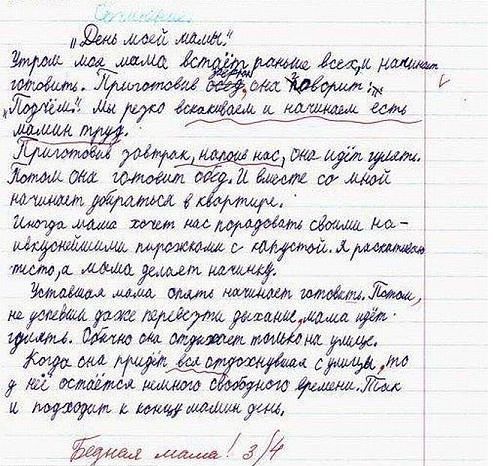 Сочинение.
„День моей мамы."
Утром моя мама встаёт раньше всех, и начинает
готовить. Приготовив завтрак обед, она говорит:
„Подъём". Мы резко вскакиваем и начинаем есть
мамин труд.
Приготовив завтрак, напоив нас, она идёт гулять.
Потом она готовит обед. И вместе со мной
начинает убираться в квартире.
Иногда мама хочет нас порадовать своими на-
ивкуснейшими пирожками с капустой. Я раскатываю
тесто, а мама делает начинку.
Уставшая мама опять начинает готовить. Потом,
не успевши даже перевезти дыхание, мама идёт
гулять. Обычно она отдыхает только на улице.
Когда она придёт вся отдохнувшая с улицы, то
у неё остаётся немного свободного времени. Так
и подходит к концу мамин день.
Бедная мама! 3/4